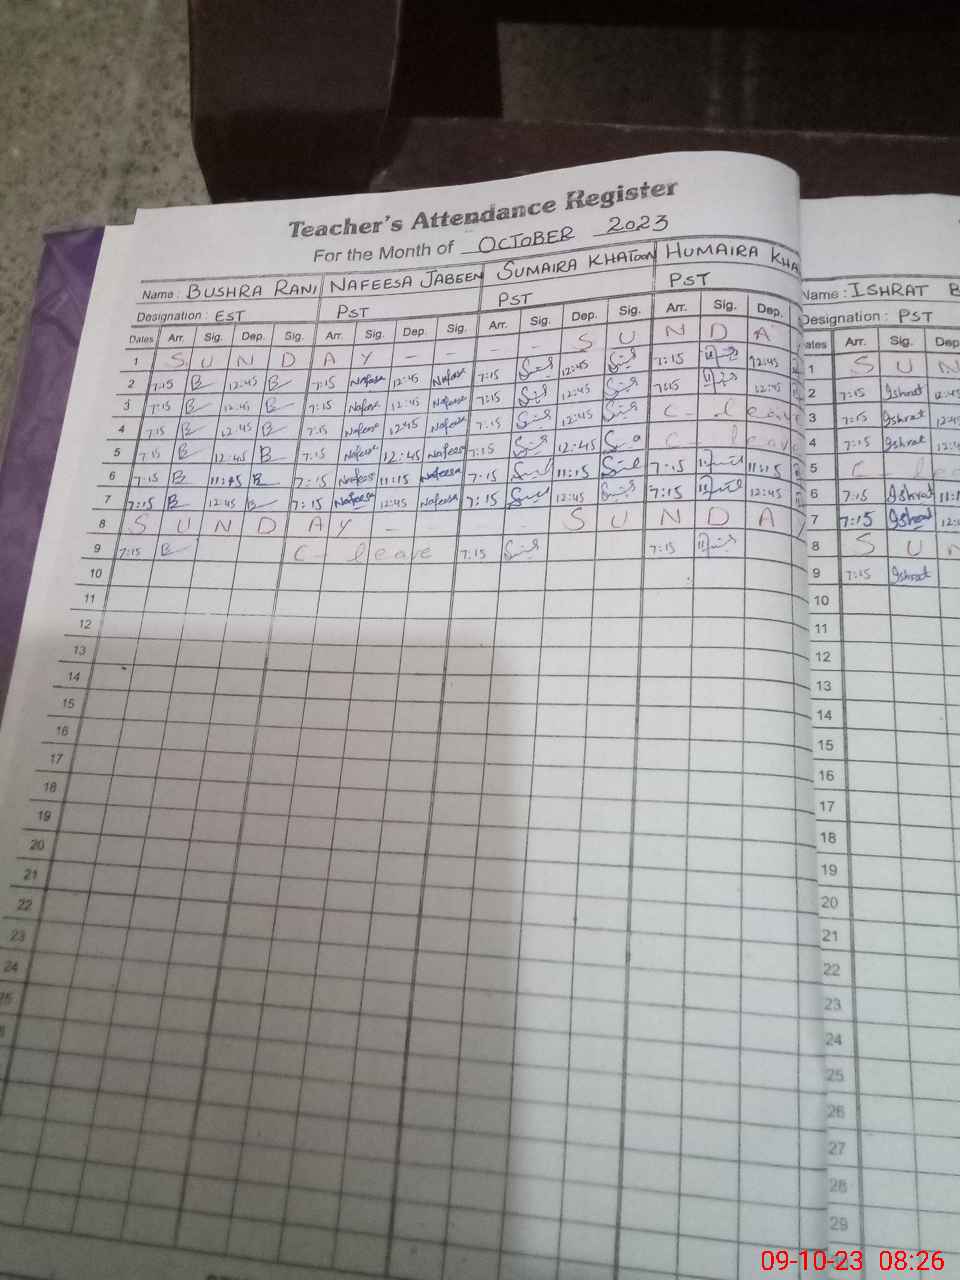 Teacher's Attendance Register
For the Month of OCTOBER 2023
Name : BUSHRA RANI NAFEESA JABEEN SUMAIRA KHATOON HUMAIRA KHA
Designation : EST PST PST PST
Dates Arr. Sig. Dep. Sig. Arr. Sig. Dep. Sig. Arr. Sig. Dep. Sig. Arr. Sig. Dep.
1 S U N D A Y - - - - - S U N D A
2 7:15 B 12:45 B 7:15 Nafeesa 12:45 Nafeesa 7:15 12:45 7:15 12:45
3 7:15 B 12:45 B 7:15 Nafeesa 12:45 Nafeesa 7:15 12:45 7:15 12:45
4 7:15 B 12:45 B 7:15 Nafeesa 12:45 Nafeesa 7:15 12:45 C- leave
5 7:15 B 12:45 B 7:15 Nafeesa 12:45 Nafeesa 7:15 12:45 C- leave
6 7:15 B 11:15 B 7:15 Nafeesa 11:15 Nafeesa 7:15 11:15 7:15 11:15
7 7:15 B 12:45 B 7:15 Nafeesa 12:45 Nafeesa 7:15 12:45 7:15 12:45
8 S U N D A Y - - - S U N D A Y
9 7:15 B C- leave 7:15 7:15
10
11
12
13
14
15
16
17
18
19
20
21
22
23
24
25
Name : ISHRAT B
Designation : PST
ates Arr. Sig. Dep
1 S U N
2 7:15 Ishrat 12:45
3 7:15 Ishrat 12:4
4 7:15 Ishrat 12:
5 C lea
6 7:15 Ishrat 11:1
7 7:15 Ishrat 12:
8 S U N
9 7:15 Ishrat
10
11
12
13
14
15
16
17
18
19
20
21
22
23
24
25
26
27
28
29
09-10-23 08:26